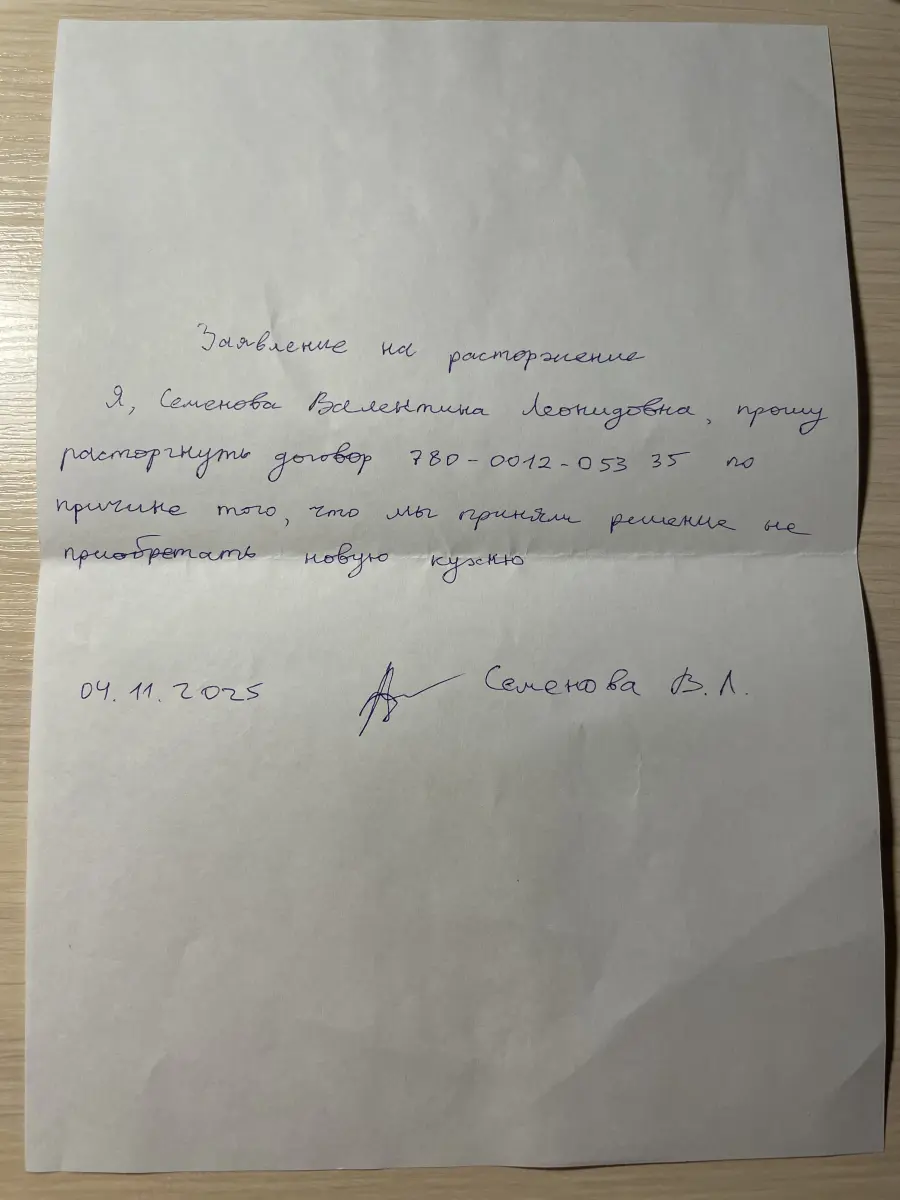 Заявление на расторжение
Я, Семенова Валентина Леонидовна, прошу
расторгнуть договор 780-0012-053 35 по
причине того, что мы приняли решение не
приобретать новую кухню
04.11.2025 Семенова В.Л.